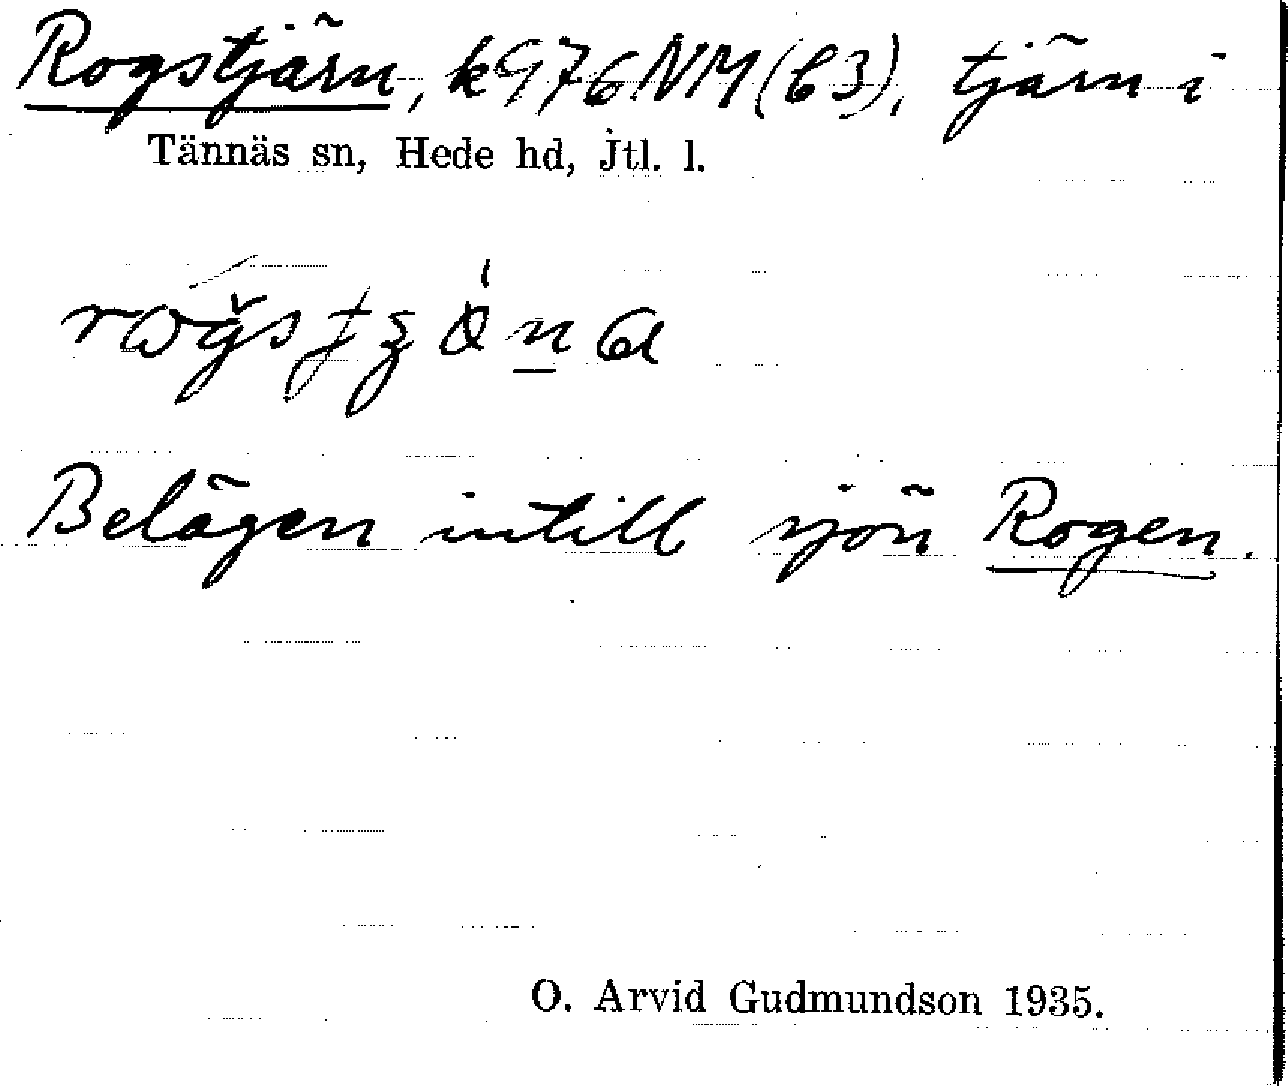 Rogstjärn, k976NM(b3), tjärn i
Tännäs sn, Hede hd, Jtl. l.
Belägen intill sjön Rogen.
O. Arvid Gudmundson 1935.